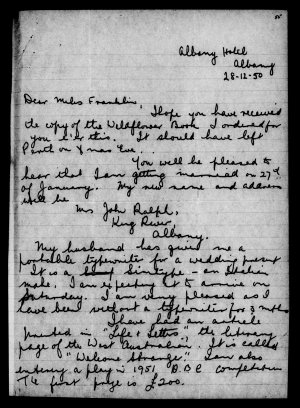 Albany Hotel
Albany
28-12-50
Dear Miles Franklin,
I hope you have received
the copy of the Wildflower Book I ordered for
you ere this. It should have left
Perth on Xmas Eve...
You will be pleased to
hear that I am getting married on 27th
of January. My new name and address
will be
Mrs John Ralph,
King River,
Albany.
My husband has given me a
portable typewriter for a wedding present
It is a Sim type - an Italian
make. I am expecting it to arrive on
Saturday. I am very pleased as I
have been without a typewriter for 3 mths
I have had an article
printed in "Life & Letters" the literary
page of the West Australian. It is called
"Welcome Stranger". I am also
entering a play in 1951 A.B.C competition
The first prize is £200.